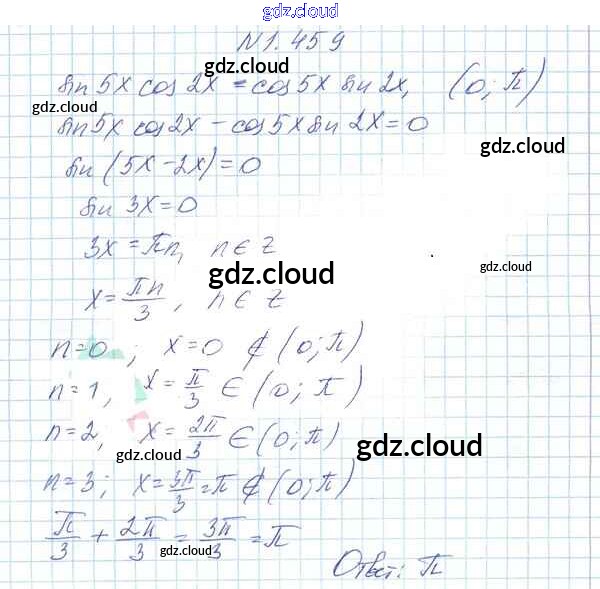 gdz.cloud
N 1.459
gdz.cloud
sin 5x cos 2x = cos 5x sin 2x, (0; π)
gdz.cloud
sin 5x cos 2x - cos 5x sin 2x = 0
gdz.cloud
sin (5x - 2x) = 0
sin 3x = 0
3x = πn, n ∈ Z
gdz.cloud
gdz.cloud
x = πn/3, n ∈ Z
n = 0; x = 0 ∉ (0; π)
n = 1, x = π/3 ∈ (0; π)
n = 2, x = 2π/3 ∈ (0; π)
gdz.cloud
gdz.cloud
n = 3; x = 3π/3 = π ∉ (0; π)
π/3 + 2π/3 = 3π/3 = π
gdz.cloud
Ответ: π